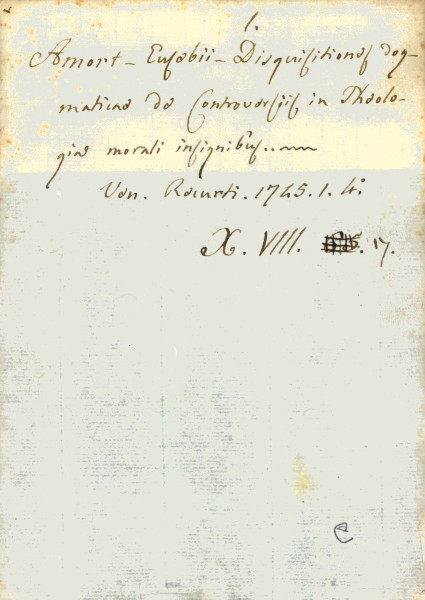 1.
Amort - Eusebii - Disquisitiones dog-
maticae de Controversiis in Theolo-
gia morali insignibus..
Ven. Recurti. 1745. 1. 4°
X. VIII. 17.